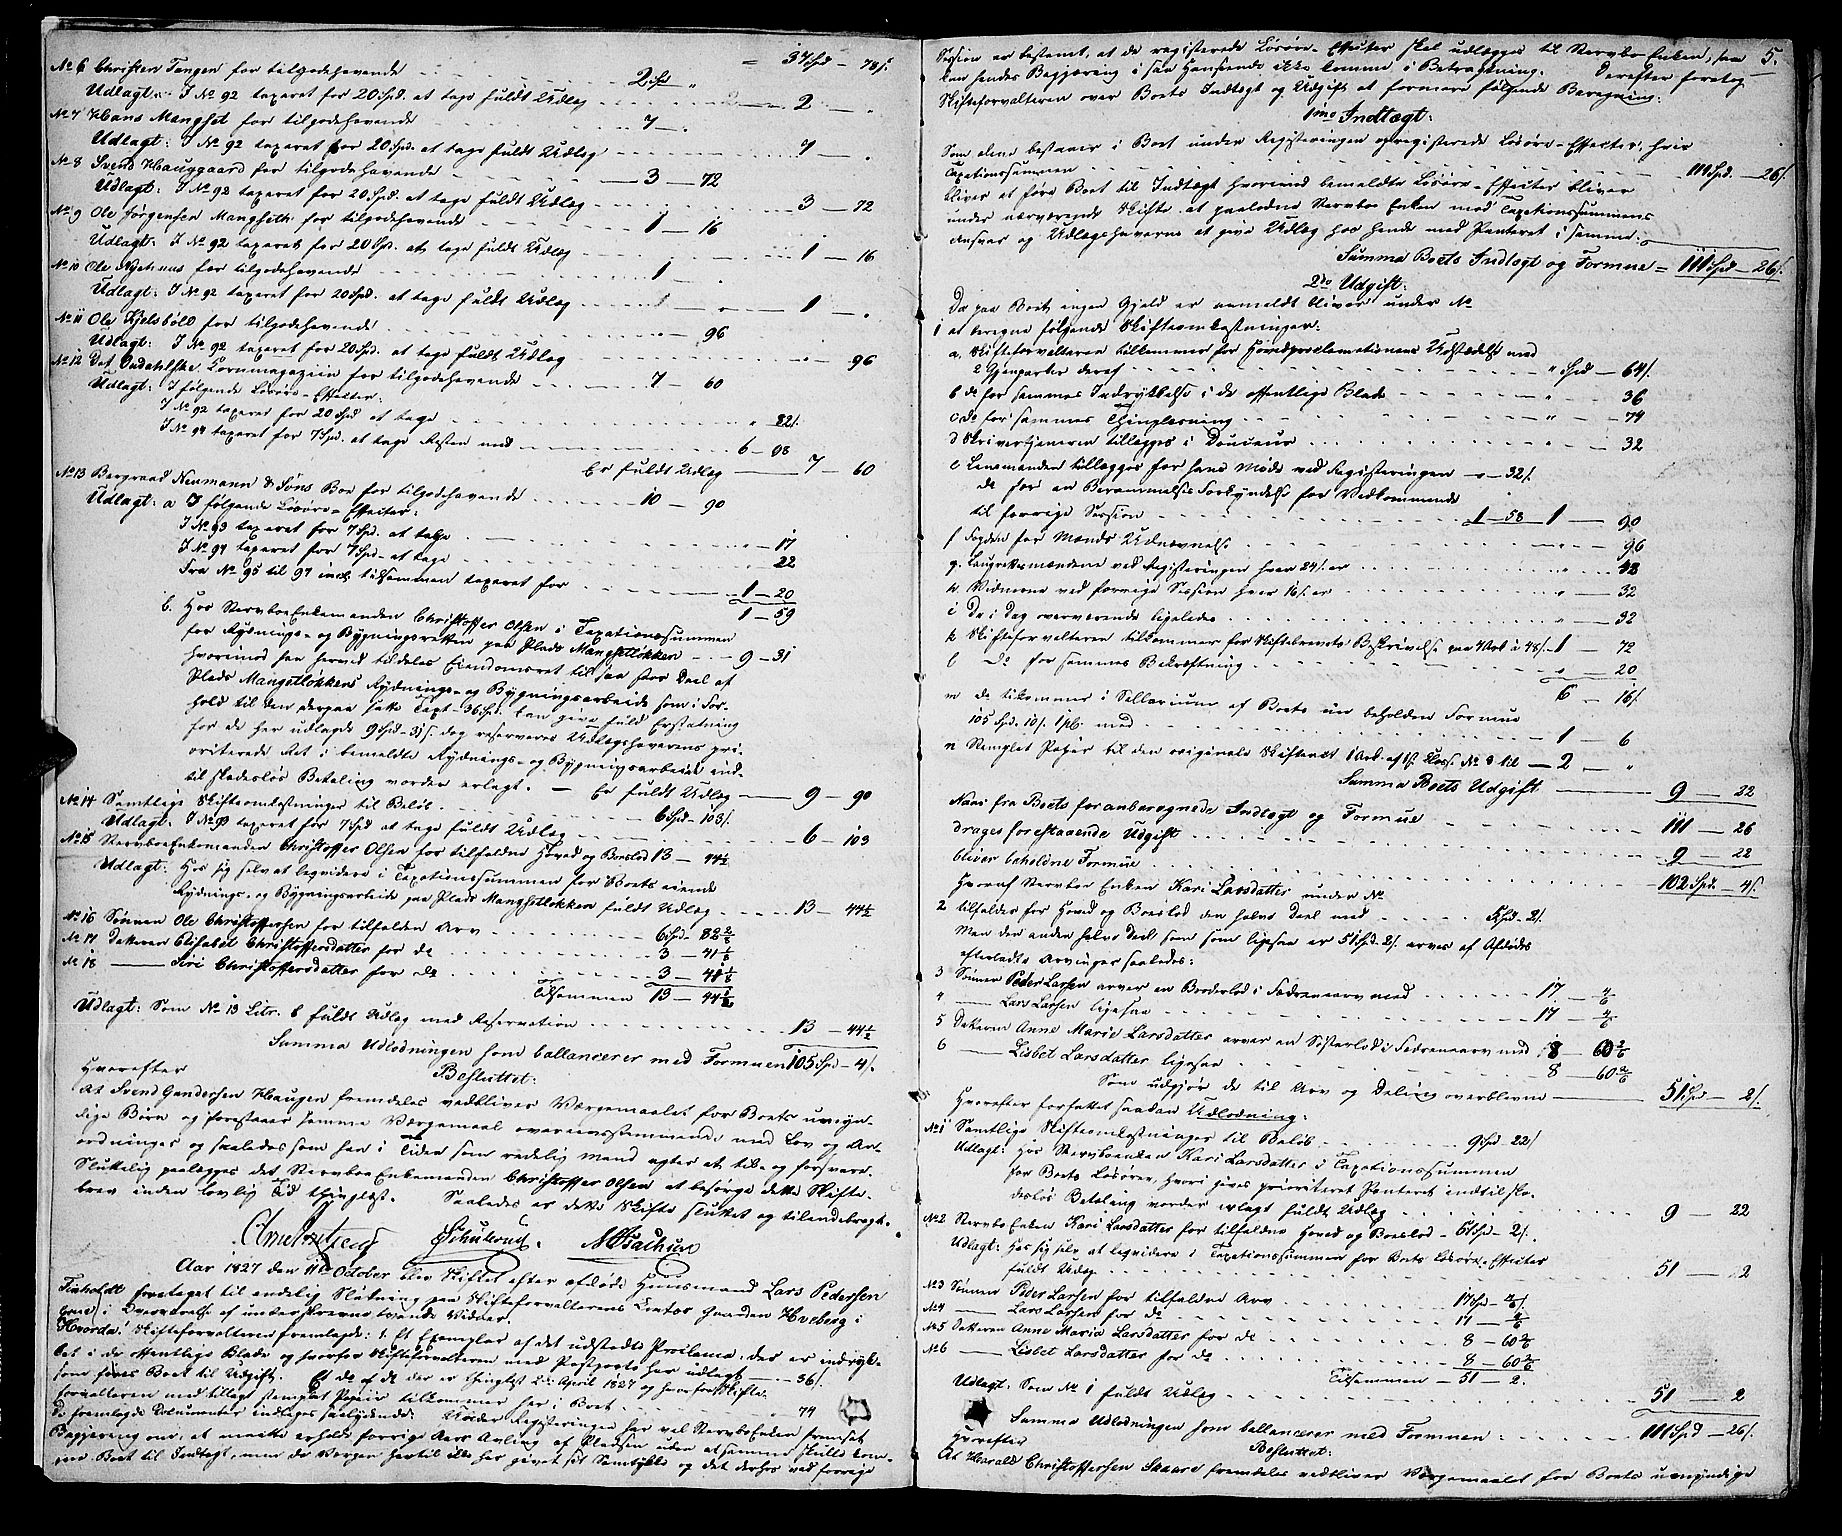 = 37 Spd - 78 s.
No 6 Christen Tangen for tilgodehavende 2 Spd "
Udlagt: I No 92 taxeret for 20 Spd. at tage fuldt Udlæg 2 - "
No 7 Hans Mangset for tilgodehavende 7 - "
Udlagt: I No 92 taxeret for 20 Spd. at tage fuldt Udlæg 7 - "
No 8 Svend Hauggaard for tilgodehavende 3 - 72
Udlagt: I No 92 taxeret for 20 Spd. at tage fuldt Udlæg 3 - 72
No 9 Ole Jørgensen Mangseth for tilgodehavende 1 - 16
Udlagt: I No 92 taxeret for 20 Spd. at tage fuldt Udlæg 1 - 16
No 10 Ole Nyehuus for tilgodehavende 1 -
Udlagt: I No 92 taxeret for 20 Spd. at tage fuldt Udlæg 1 - "
No 11 Ole Kjelsböld for tilgodehavende " - 96
Udlagt: I No 92 taxeret for 20 Spd. at tage fuldt Udlæg " - 96
No 12 Det Kornmagaziin for tilgodehavende 7 - 60
Udlagt: I følgende Løsøre-Effecter:
I No 92 taxeret for 20 Spd at tage " 82 s.
I No 94 taxeret for 7 Spd. at tage Resten med 6 - 98
Er fuldt Udlæg 7 - 60
No 13 Bergraad Neumann & Søns Boe for tilgodehavende 10 - 90
Udlagt: a I følgende Løsøre-Effecter:
I No 93 taxeret for 7 Spd. at tage " - 17
I No 94 taxeret for 7 Spd - at tage " 22
Fra No 95 til 97 incl. tilsammen taxeret for 1 - 20
1 - 59
b. Hos Stervboe Enkemanden Christoffer Olsen i Taxationssummen
for Rydnings- og Bygningsretten paa Plads Mangsetløkken 9 - 31
hvorimod han herved tildeles Eiendomsret til saa stor Deel af
Plads Mangsetløkkens Rydnings- og Bygningsarbeide som i For-
hold til den derpaa satte Taxt - 36 Spd. kan give fuld Erstatning
for de her udlagde 9 Spd - 31 s. dog reserveres Udlægshaverens pri-
oriterede Ret i bemeldte Rydnings- og Bygningsarbeide ind-
til skadesløs Betaling vorder erlagt. - Er fuldt Udlæg 9 - 90
No 14 Samtlige Skifteomkostninger til Beløb 6 Spd - 103 s.
Udlagt: I No 93 taxeret for 7 Spd at tage fuldt Udlæg 6 - 103
No 15 Stervboe Enkemanden Christoffer Olsen for tilfaldne Hoved og Boeslod 13 - 44½
Udlagt: Hos sig selv at liqvidere i Taxationssummen for Boets eiende
Rydnings- og Bygningsarbeide paa Plads Mangsetløkken fuldt Udlæg 13 - 44½
No 16 Sønnen Ole Christoffersen for tilfalden Arv 6 Spd - 82 2/8
No 17 Datteren Elisabet Christoffersdatter for do 3 - 41 1/8
No 18 — Siri Christoffersdatter for do 3 - 41 1/8
Tilsammen 13 - 44½
Udlagt: Som No 13 Litr. b fuldt Udlæg med Reservation 13 - 44½
Summa Udlodningen som ballancerer med Formuen 105 Spd - 4 s.
Hvorefter
Besluttet:
At Svend Gundersen Haugen fremdeles vedbliver Værgemaalet for Boets umyn-
dige Børn og forestaaer samme Værgemaal overensstemmende med Lov og An-
ordninger og saaledes som han i Tiden som redelig Mand agter at til- og forsvare.
Slutelig paalægges det Stervboe Enkemanden Christoffer Olsen at besørge dette Skifte-
brev inden lovlig Tid thinglæst. Saaledes er dette Skifte sluttet og tilendebragt.
Aar 1827 den 11te October blev Skiftet efter afdøde Huusmand Lars Pedersen
foretaget til endelig Slutning paa Skifteforvalterens Contor Gaarden Hveberg i
i Overværelse af underskrevne tvende Vidner.
Hvorda: Skifteforvalteren fremlagde: 1. Et Exemplar af det udstedte Proclama, der er indryk-
ket i de offentlige Blade og hvorfor Skifteforvalteren med Postporto har udlagt 36 s.
som føres Boet til Udgift. Et do af do der er thinglæst April 1827 og hvorfor Skifte-
forvalteren med tillagt stemplet Papiir tilkommer her i Boet 74
De fremlagde Dokumenter indtages saalydende: Under Registeringen har vel Stervboe Enken fremsat
Begjæring om, at maatte erholde forrige Aars Avling af Pladsen uden at samme skulde kom-
me Boet til Indtægt, men da Værgen hertil ikke har givet sit Samtykke og det derhos ved forrige
5.
Session er bestemt, at de registerede Løsøre-Effecter skal udlægges til Stervboe Enken, saa
kan hendes Begjæring i saa Henseende ikke komme i Betragtning. Derefter foretog
Skifteforvalteren over Boets Indtægt og Udgift at formere følgende Beregning:
1mo Indtægt:
Som alene bestaaer i Boet under Registeringen opregisterede Løsøre-Effecter, hvis
Taxationssummen 111 Spd. - 26 s.
bliver at føre Boet til Indtægt hvorimod bemeldte Løsøre-Effecter bliver
under nærværende Skifte at paalodne Stervboe Enken mod Taxationssummens
Ansvar og Udlægshaverne at give Udlæg hos hende med Panteret i samme.
Summa Boets Indtægt og Formue = 111 Spd - 26 s.
2do Udgift:
Da paa Boet ingen Gjeld er anmeldt bliver under No
1 at beregne følgende Skifteomkostninger:
a. Skifteforvalteren tilkommer for Hovedproclamationens Udstædelse med
2 Gjenparter deraf " Spd - 64 s.
b do for sammes Indrykkelse i de offentlige Blade " - 36
c do for sammes Thinglæsning " - 74
d Skrivertjeneren tillægges i Douceur " - 32
e Lensmanden tillægges for hans Møde ved Registeringen " - 32 s.
do for en Berammelses Forkyndelse for Vedkommende
til forrige Session 1 - 58 1 - 90
f Fogden for Mænds Udnævnelse " - 96
g. Laugrettsmændene ved Registeringen hver 24 s. er " - 48
h. Vidnerne ved forrige Session hver 16 s. er " - 32
i De i Dag overværende ligeledes " - 32
k Skifteforvalteren tilkommer for Skiftebrevets Beskrivelse paa 4 Ark à 48 s. 1 - 72
l do for sammes Bekræftning " - 20
6 - 16 s.
m do tilkommer i Sallarium af Boets nu beholden Formue
105 Spd. 10 s. 1 pCt. med 1 - 6
n Stemplet Papiir til den originale Skifteact 1 Ark af 1ste Klasse No 9 til 2 - "
Summa Boets Udgift 9 - 22
Naar fra Boets foranberegnede Indtægt og Formue 111 - 26
drages forestaaende Udgift 9 - 22
bliver beholdne Formue 102 Spd. - 4 s.
Hvoraf Stervboe Enken Kari Larsdatter under No
2 tilfalder for Hoved og Boeslod den halve Deel med 51 Spd - 2 s.
Men den anden halve Deel som som ligesaa er 51 Spd. 2 s. arves af Afdødes
efterladte Arvinger saaledes:
3 Sønnen Peder Larsen arver en Broderlod i Fædrenearv med 17 - 4/6
4 — Lars Larsen ligesaa 17 - 4/6
5 Datteren Anne Marie Larsdatter arver en Søsterlod i Fædrenearv med 8 - 60 2/6
6 — Lisbet Larsdatter ligesaa 8 - 60 2/6
Som udgjør de til Arv og Deling overblevne 51 Spd - 2 s.
Hvorefter forfattet saadan Udlodning:
No 1 Samtlige Skifteomkostninger til Beløb 9 Spd 22 s
Udlagt: Hos Stervboenken Kari Larsdatter i Taxationssummen
for Boets Løsøre, hvori gives prioriteret Panteret indtil ska-
desløs Betaling vorder erlagt fuldt Udlæg 9 - 22
No 2 Stervbo Enken Kari Larsdatter for tilfaldne Hoved og Boeslod - 51 Spd - 2 s.
Udlagt: Hos sig selv at liqvidere i Taxationssummen for Boets Løsøre-Effecter
fuldt Udlæg 51 - 2
No 3 Sønnen Peder Larsen for tilfalden Arv 17 Spd - 4/6 s.
No 4 — Lars Larsen for do 17 - 4/6
No 5 Datteren Anne Marie Larsdatter for do 8 - 60 2/6
No 6 — Lisbet Larsdatter for do 8 - 60 2/6
Tilsammen - 51 - 2.
Udlagt: Som No 1 fuldt Udlæg 51 - 2
Summa Udlodningen som ballancerer med Formuen 111 Spd - 26 s.
Hvorefter
Besluttet:
At Harald Christoffersen Skaare fremdeles vedbliver Værgemaalet for Boets umyndige